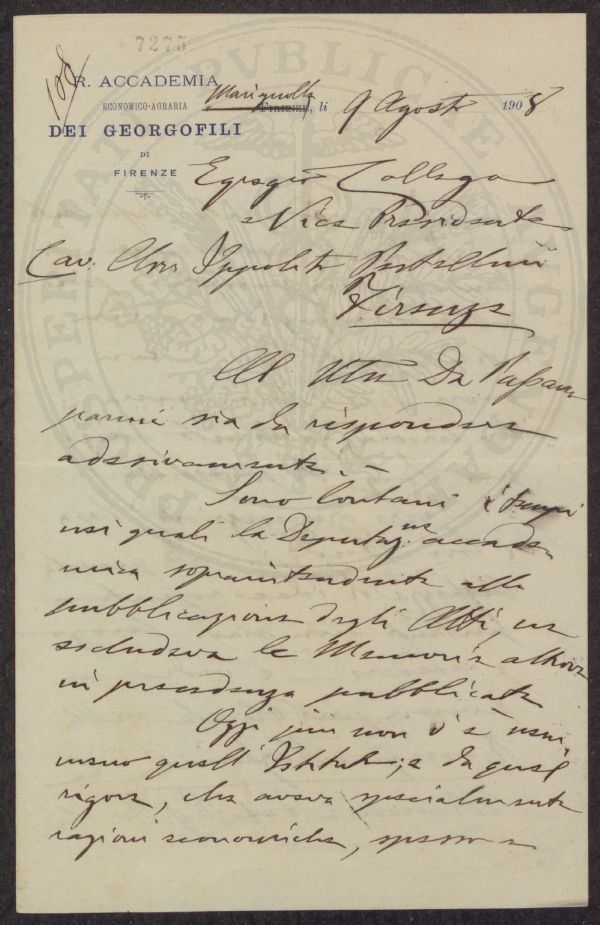 7275
128
R. ACCADEMIA
ECONOMICO-AGRARIA
DEI GEORGOFILI
DI
FIRENZE
Marignolle
FIRENZE, li 9 Agosto 1908
Egregio Collega
Vice Presidente
Cav. Avv. Ippolito Pestellini
Firenze
Al Sig. Da Passano
parmi sia da rispondere
adesivamente. —
Sono lontani i tempi
nei quali la Deputaz.ne accade-
mica sopraintendente alla
pubblicazione degli Atti, ne
escludeva le Memorie altrove
in precedenza pubblicate
Oggi più non v'è nem-
meno quell' Istituto; e da quel
rigore, che aveva specialmente
ragioni economiche, spesso